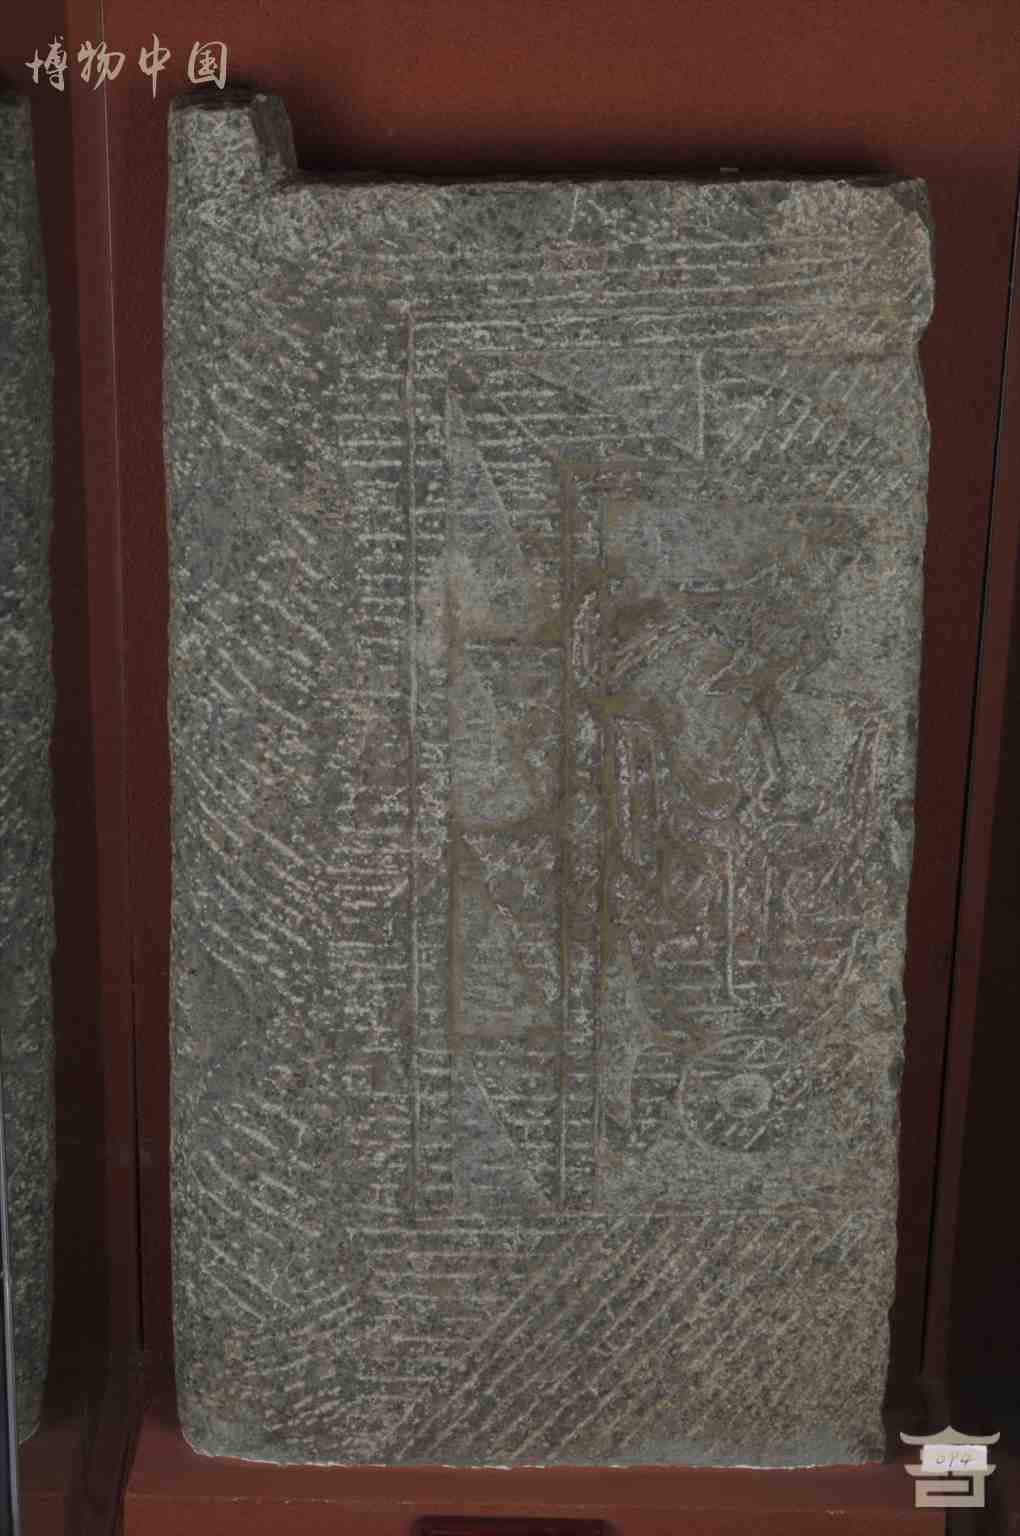 博物中国
094